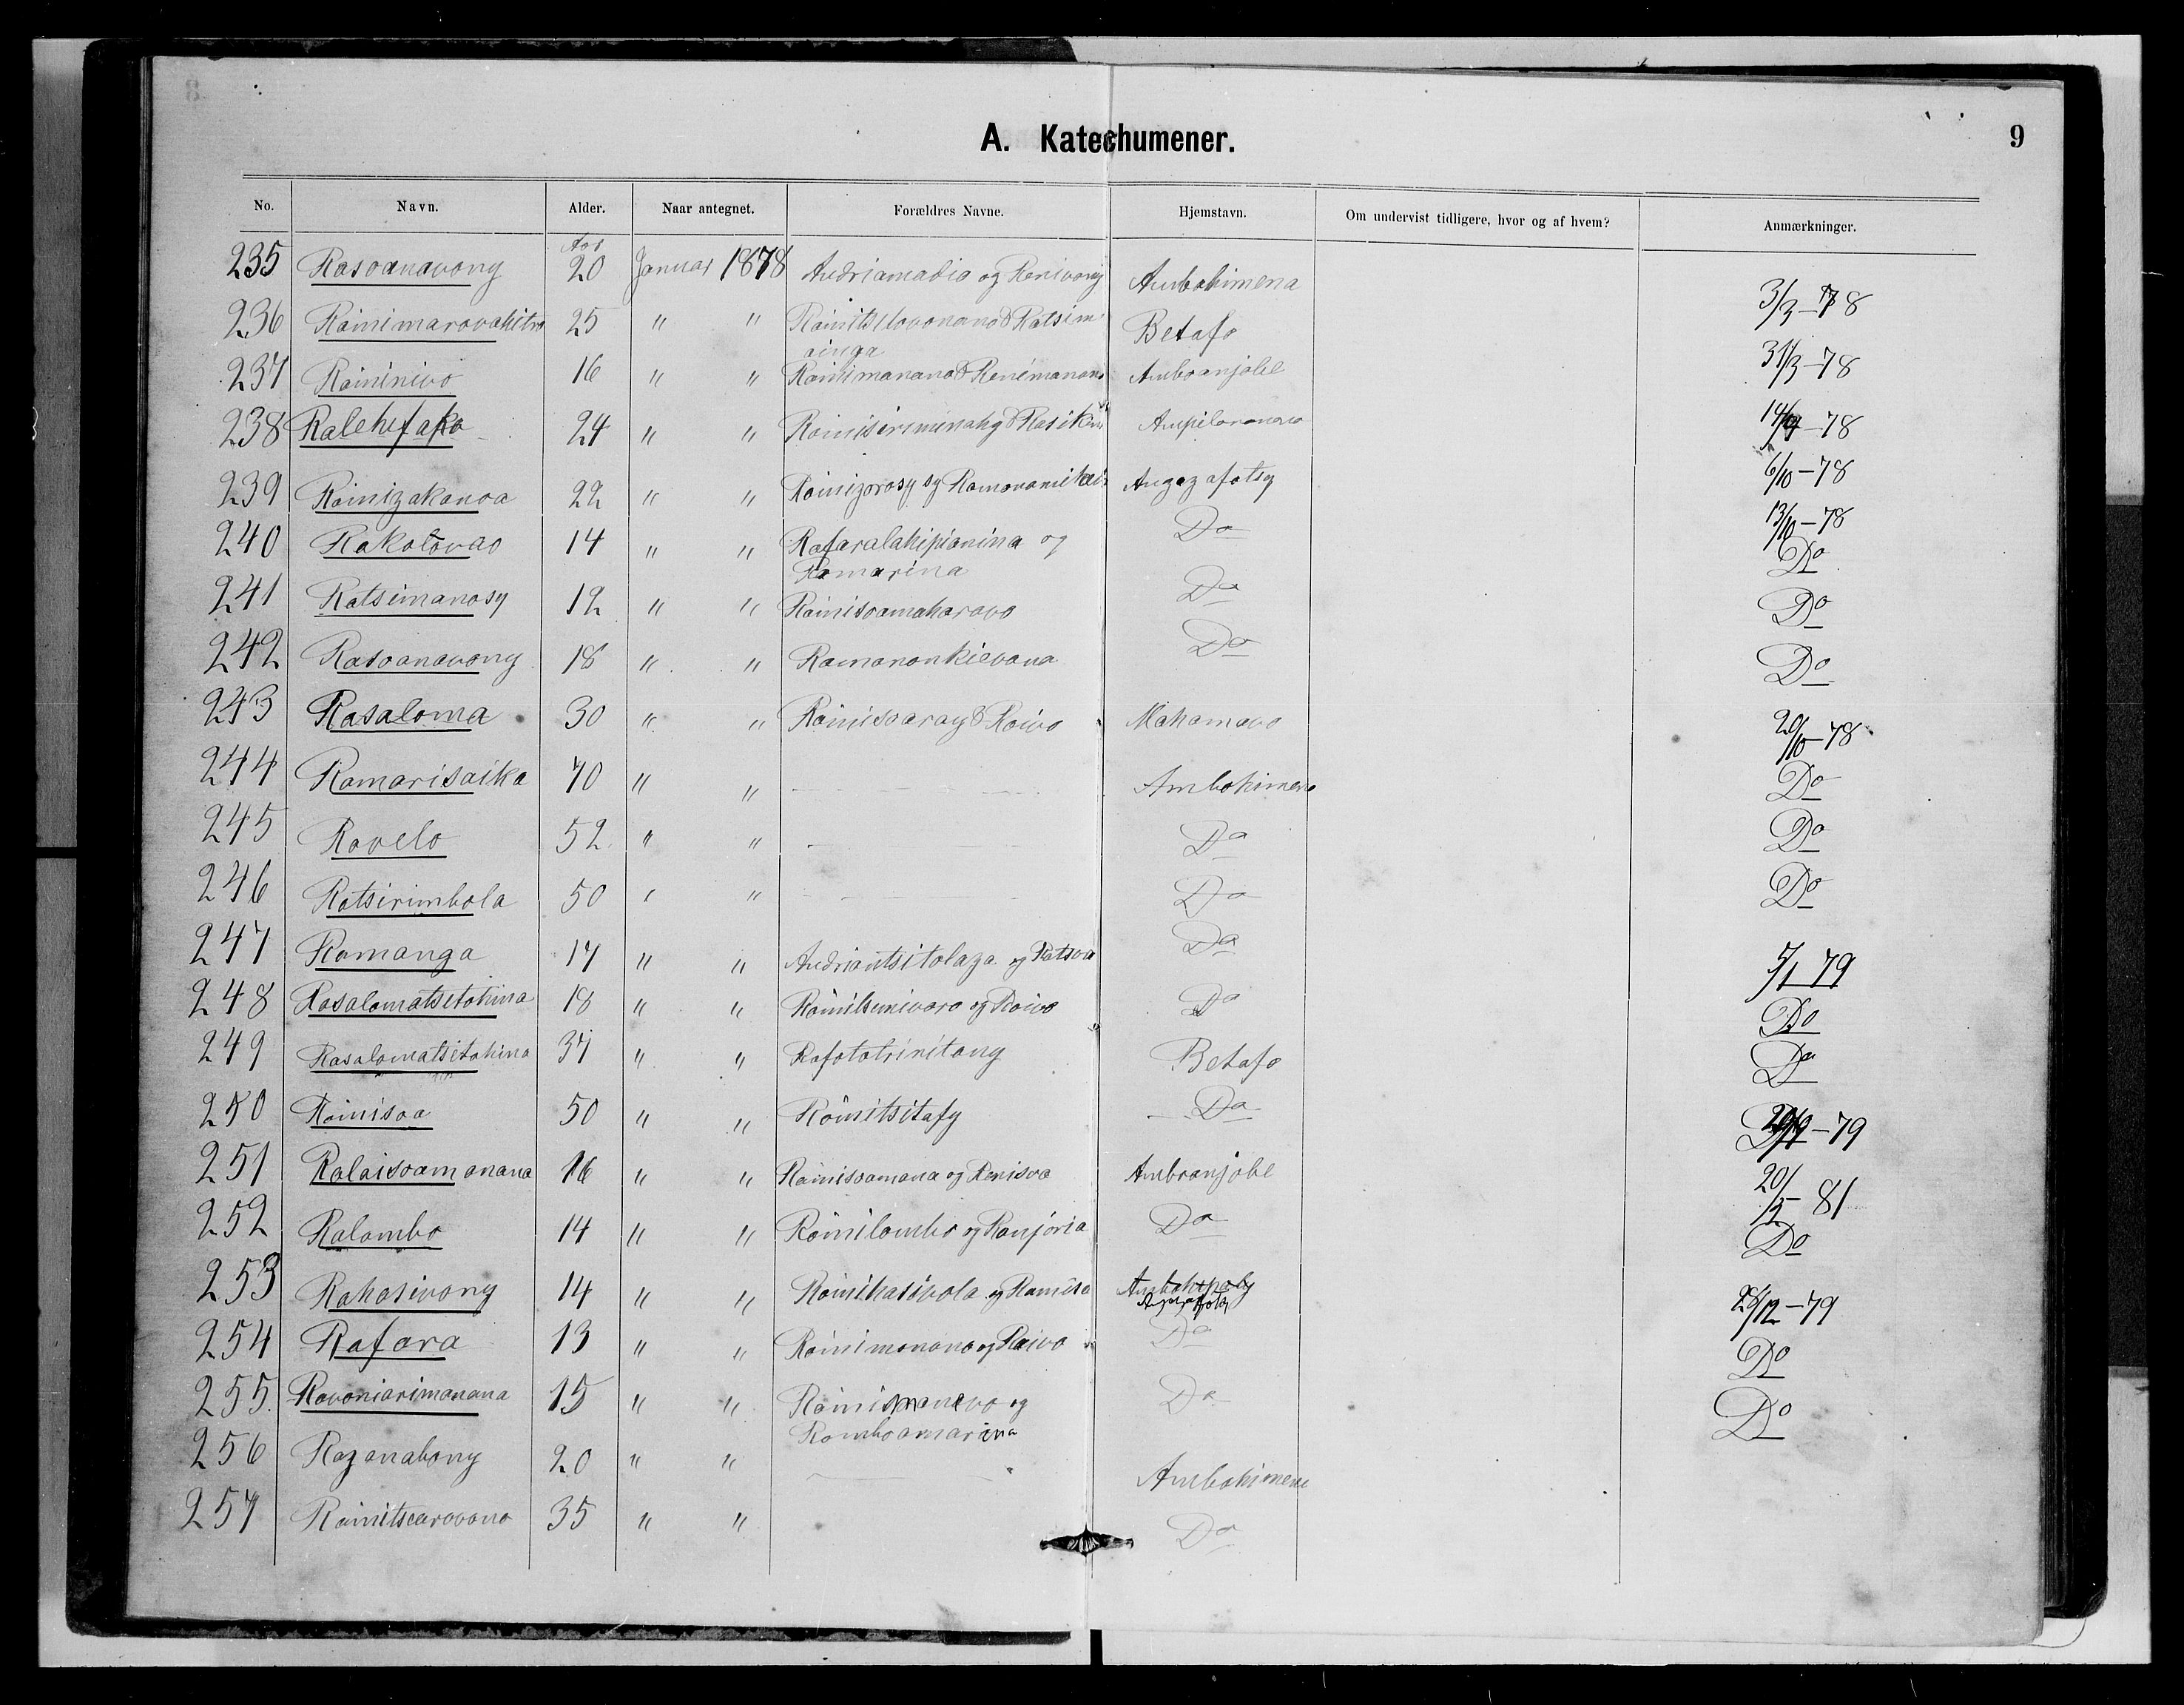 A. Katechumener.
9
No. Navn. Alder. Naar antegnet. Forældres Navne. Hjemstavn. Om undervist tidligere, hvor og af hvem? Anmærkninger.
Aar
235 Rasoanavony 20 Januar 1878 Andriamadio og Renivony Ambohimena 3/3-78
236 Rainimarovahitra 25 " " & Ratsim Betafo 31/3-78
ainga
237 Raininivo 16 " " Rainimanana & Renimanana Amboanjobe -78
238 Ralehefaka 24 " " Rainisiriminahy & 6/10-78
239 Rainizakanoa 22 " " Rainizorosy og Angazafotsy 13/10-78
240 Rakotovao 14 " " Rafaralahipianina og Do Do
Ramarina
241 Ratsimanosy 12 " " Rainisoamaharavo Do Do
242 Rasoanavony 18 " " Do Do
243 Rasaloma 30 " " Rainisoaray & Raivo Mahamavo 20/10-78
244 Ramarisaika 70 " " Ambohimena Do
245 Ravelo 52 " " Do Do
246 Ratsirimbola 50 " " Do Do
247 Ramanga 17 " " Andriantsitolaza og Ratsoa Do 5/1 79
248 Rasalomatsitohina 18 " " og Raivo Do Do
249 Rasalomatsitohina 37 " " Rafototrinitany Betafo Do
250 Rainisoa 50 " " Rainitsitafy Do -79
251 Ralaisoamanana 16 " " Rainisoamana og Renisoa Amboanjobe 20/2- 81
252 Ralambo 14 " " Rainilambo og Ranjoria Do Do
253 Rahasivony 14 " " Rainihasibola og Ramisa 28/12-79
254 Rafara 13 " " Rainimanana og Raivo Do Do
255. Ravoniarimanana 15 " " Rainimanevo og Do Do
Ramboamarina
256 Razanabony 20 " " Ambohimena
257 Rainitsaravana 35 " " Do